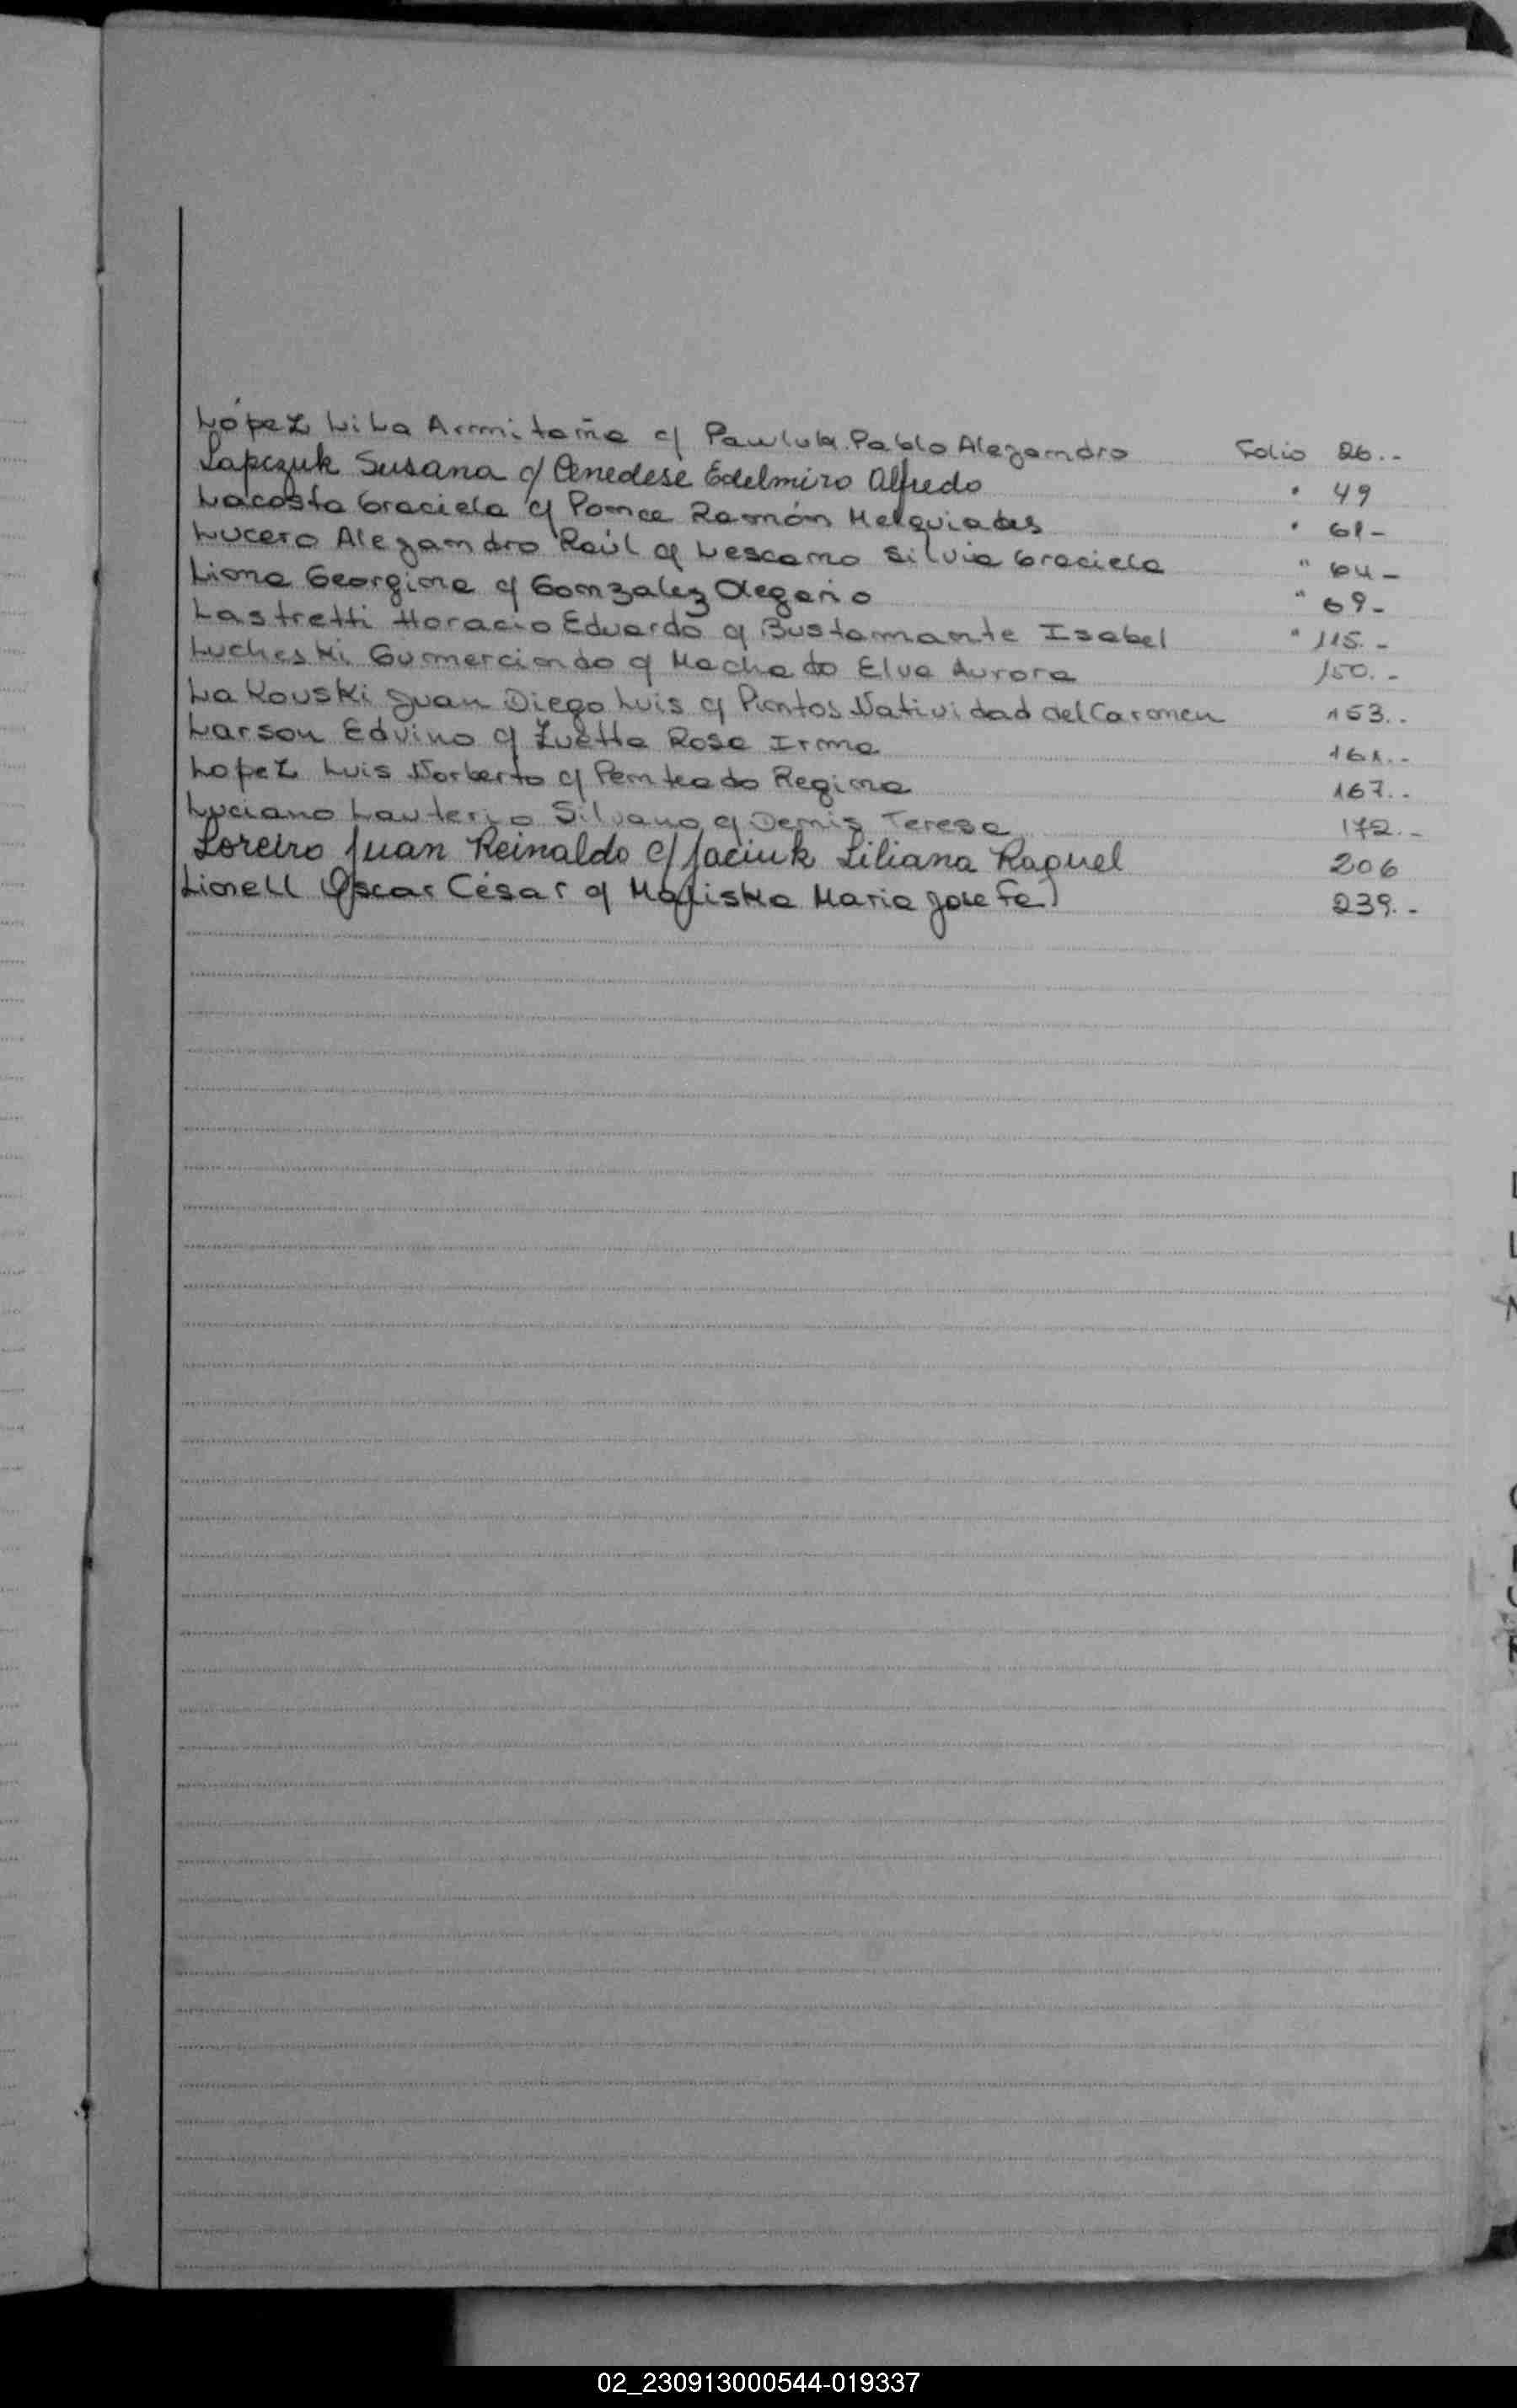 López Lila Armitaña c/ Pawluk Pablo Alejandro Folio 26..-
Lapczuk Susana c/ Cenedese Edelmiro Alfredo " 49
Lacosta Graciela c/ Ponce Ramón Melquiades " 61-
Lucero Alejandro Raúl c/ Lescano Silvia Graciela " 64-
Liona Georgina c/ Gonzalez Olegario " 69-
Lastretti Horacio Eduardo c/ Bustamante Isabel " 115.-
Lucheski Gumercindo c/ Machado Elva Aurora 150.-
Lakouski Juan Diego Luis c/ Pintos Natividad del Carmen 153..
Larson Edvino c/ Zuetta Rosa Irma 161..-
Lopez Luis Norberto c/ Penteado Regina 167..
Luciano Lauterio Silvano c/ Denis Teresa 172.-
Loreiro Juan Reinaldo c/ Jaciuk Liliana Raquel 206
Lionell Oscar César c/ Maria Josefa 239.-
02_230913000544-019337